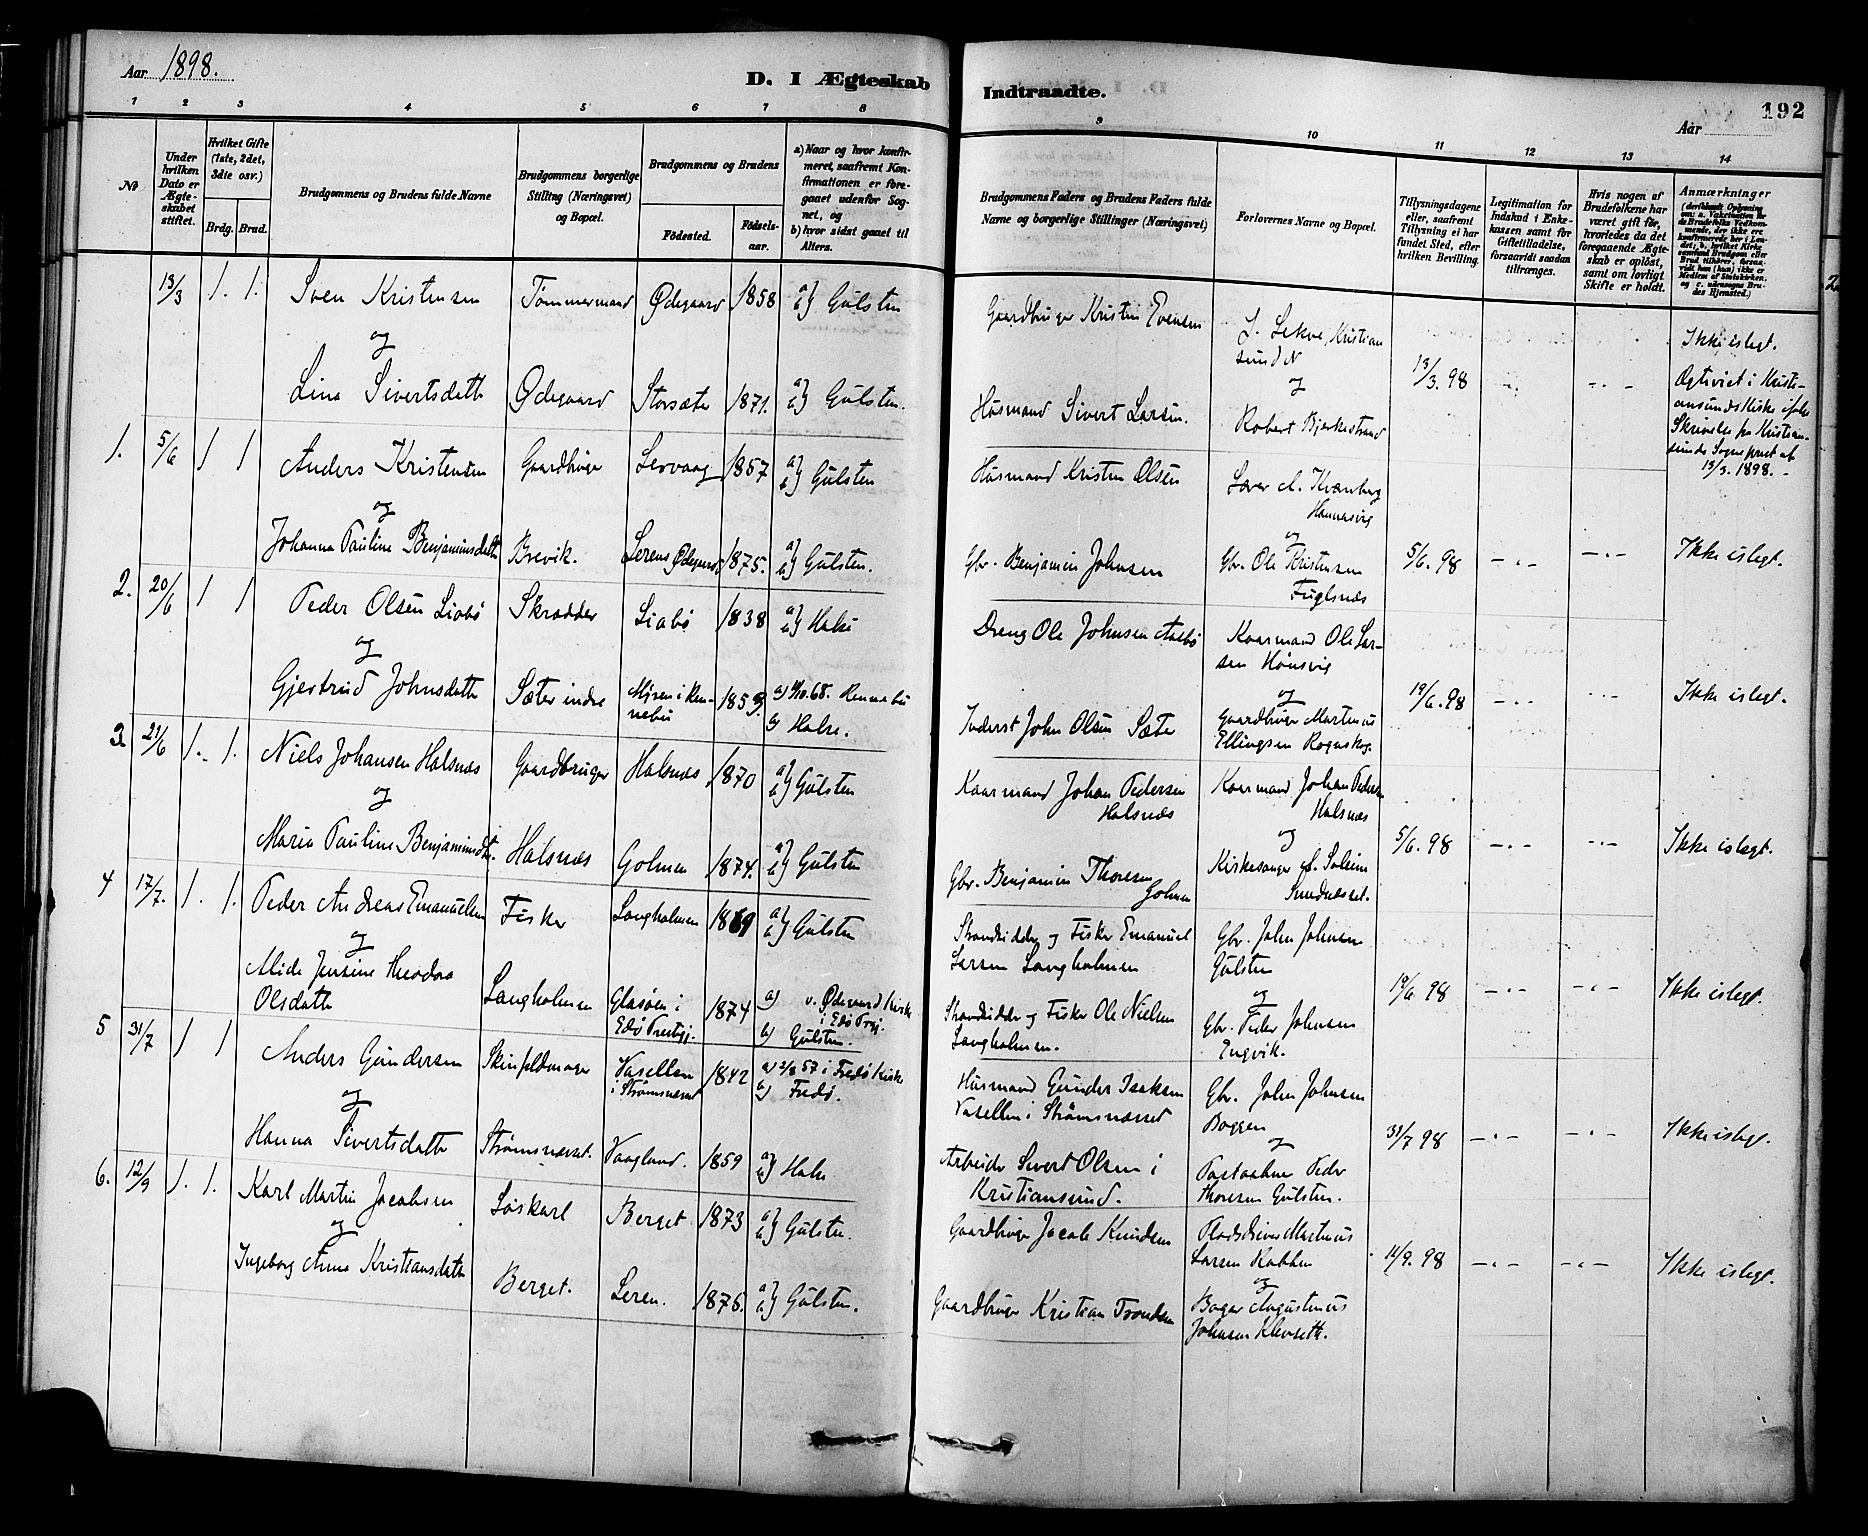 Aar 1898.
D. I Ægteskab
Indtraadte.
192
Aar
1 2 3 4 5 6 7 8
9 10 11 12 13 14
No
Under hvilken Dato er Ægteskabet stiftet.
Hvilket Gifte (1ste, 2det, 3die osv.)
Brdg. Brud.
Brudgommens og Brudens fulde Navne
Brudgommens borgerlige Stilling (Næringsvei) og Bopæl.
Brudgommens og Brudens
Födested.
Födselsaar.
a) Naar og hvor konfirmeret, saafremt Konfirmationen er foregaaet udenfor Sognet, og
b) hvor sidst gaaet til Alters.
Brudgommens Faders og Brudens Faders fulde Navne og borgerlige Stillinger (Næringsvei)
Forlovernes Navne og Bopæl.
Tillysningsdagene eller, saafremt Tillysning ei har fundet Sted, efter hvilken Bevilling.
Legitimation for Indskud i Enkekassen samt for Giftetilladelse, forsaavidt saadan tiltrænges.
Hvis nogen af Brudefolkene har været gift før, hvorledes da det foregaaende Ægteskab er oplöst, samt om lovligt Skifte er holdt.
Anmærkninger
13/3 1. 1. Sven Kristensen Tømmermand Ødegaard 1858 a) b) Gulsten
og
Lina Sivertsdatt Ødegaard Storsæter 1871. a) b) Gulsten.
Gaardbruger Kristen Evensen
Husmand Sivert Larsen.
L. Lekve, Kristian
sund N
og
Robert Bjerkestrand
13/3. 98 -.- -.-
Ikke islegt.
Ægteviet i Kristi-
ansunds Kirke ifølge
Skrivelse fra Kristian-
sunds Sognepræst af
13/3. 1898. -
1. 5/6 1 1 Anders Kristensen Gaardbruger Lervaag 1857 a) b) Gulsten
og
Johanna Pauline Benjaminsdatt Brevik. Lerens Ødegaard 1875. a) b) Gulsten.
Husmand Kristen Olsen
Gbr. Benjamin Johnsen
Lærer A. Kvanberg
Hannasvig
og
Gbr. Ole Kristensen
Fuglsnæs
5/6. 98 -.- -.- Ikke islegt.
2. 20/6 1 1 Peder Olsen Liabø Skrædder Liabø 1838 a) b) Halse
og
Gjertrud Johnsdatt Sæter indre Myren i Ren-
nebu 1859. a) 4/10.68. Rennebu
b) Halse.
Dreng Ole Johnsen Aasbø
Inderst John Olsen Sæter
Kaarmand Ole Lar-
sen Hønsvig
og
Gaardbruger Martinus
Ellingsen Rognskog.
19/6. 98 -.- -.- Ikke islegt.
3. 21/6 1. 1. Niels Johansen Halsnæs Gaardbruger Halsnæs 1870 a) b) Gulsten
og
Maria Pauline Benjaminsdt. Halsnæs Golmen 1874. a) b) Gulsten
Kaarmand Johan Pedersen
Halsnæs
Gbr. Benjamin Thoresen
Golmen
Kaarmand Johan Pedersen
Halsnæs
og
Kirkesanger A. Soleim
Sundnæsset.
5/6. 98 -.- -.- Ikke islegt.
4 17/7. 1. 1. Peder Andreas Emanuelsen Fisker Langholmen 1869 a) b) Gulsten
og
Alide Jensine Theodora
Olsdatt Langholmen Glasøen i
Edø Prestgj. 1874 a) v. Ødegaard Kirke
i Edø Prgj.
b) Gulsten.
Strandsidder og Fisker Emanuel
Larsen Langholmen
Strandsidder og Fisker Ole Nielsen
Langholmen.
Gbr. John Johnsen
Gulsten
og
Gbr. Peder Johnsen
Engvik.
19/6. 98 -.- -.- Ikke islegt.
5 31/7 1 1 Anders Gundersen Skinfeldmager Vasellen
i Strømsnæsset 1842 a) 2/8 57 i Fredø Kirke
b) Fredø.
og
Hanna Sivertsdatt Strømsnæsset. Vaagland. 1859 a) b) Halse
Husmand Gunder Isaksen
Vasellen i Strømsnæsset
Arbeider Sivert Olsen i
Kristiansund.
Gbr. John Johnsen
Boggen
og
Postaabner Peder
Thoresen Gulsten.
31/7 98 -.- -.- Ikke islegt.
6. 12/9 1. 1. Karl Martin Jacobsen Løskarl Berget 1873 a) b) Gulsten.
og
Ingeborg Anna Kristiansdatt Berget. Leren. 1876. a) b) Gulsten.
Gaardbruger Jacob Knudsen
Gaardbruger Kristian Trondsen
Pladsbruger Martinus
Larsen Rakken
og
Bager Augustinus
Johnsen Klevseth.
11/9. 98 -.- -.- Ikke islegt.